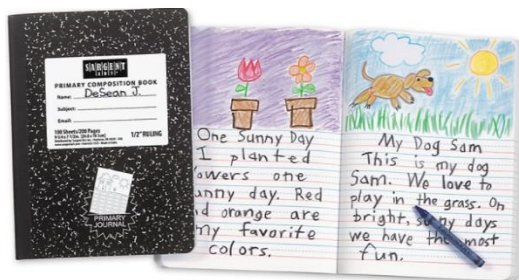 SARGENT
ART
PRIMARY COMPOSITION BOOK
Name: DeSean J.
Subject:
Email:
100 Sheets/200 Pages
1/2" RULING
PRIMARY
JOURNAL
One Sunny Day
I planted
owers one
unny day. Red
d orange are
my favorite
colors.
My Dog Sam
This is my dog
Sam. We love to
play in the grass. On
bright, su ny days
we have the most
fun.